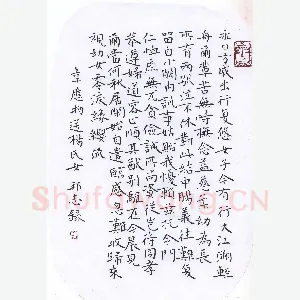 永日方戚出行復悠女子今有行大江泝輕
舟爾輩苦無恃撫念益慈柔幼為長
所育兩別泣不休對此結中腸義往難復
留自小闕內訓事姑貽我憂賴茲托令門
仁恤庶無尤貧儉誠所尚資從豈待周孝
恭遵婦道容止順其猷別離在今晨見
爾當何秋居閑始自遣臨感忽難收歸來
視幼女零淚緣纓流
韋應物送楊氏女 祁志錄
Shufawang.CN